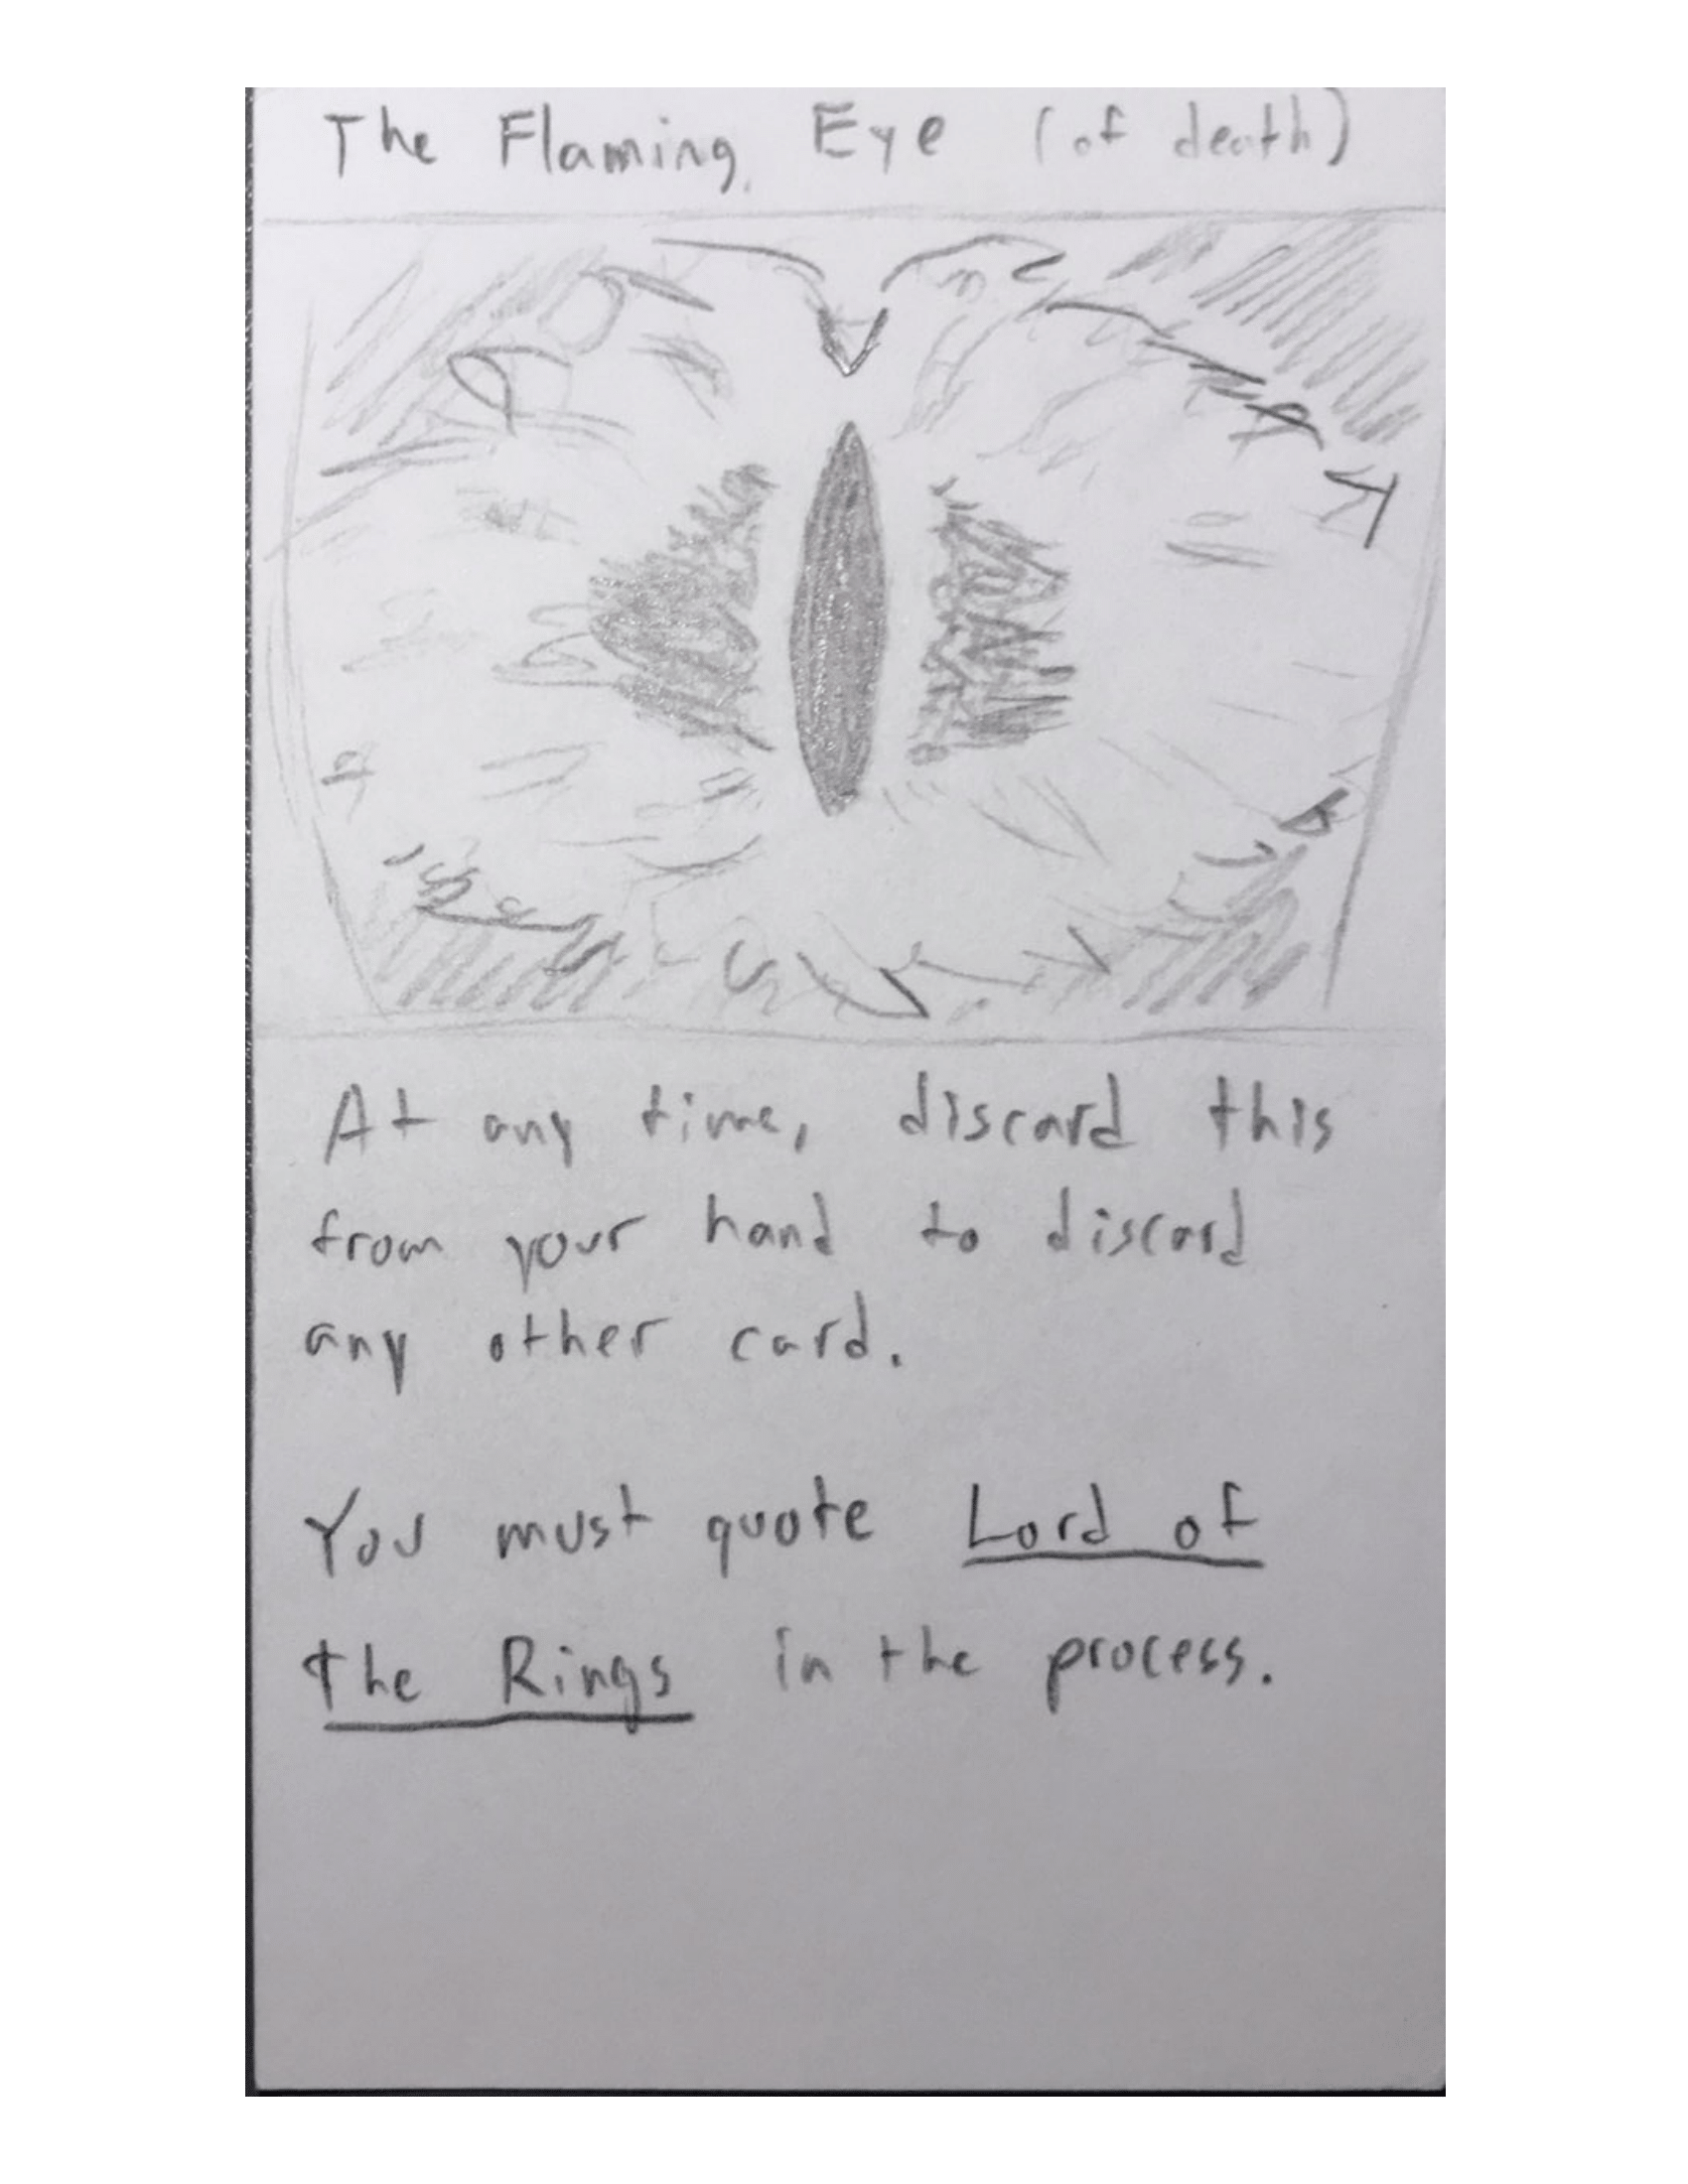 The Flaming Eye (of death)
At any time, discard this
from your hand to discard
any other card.
You must quote Lord of
the Rings in the process.